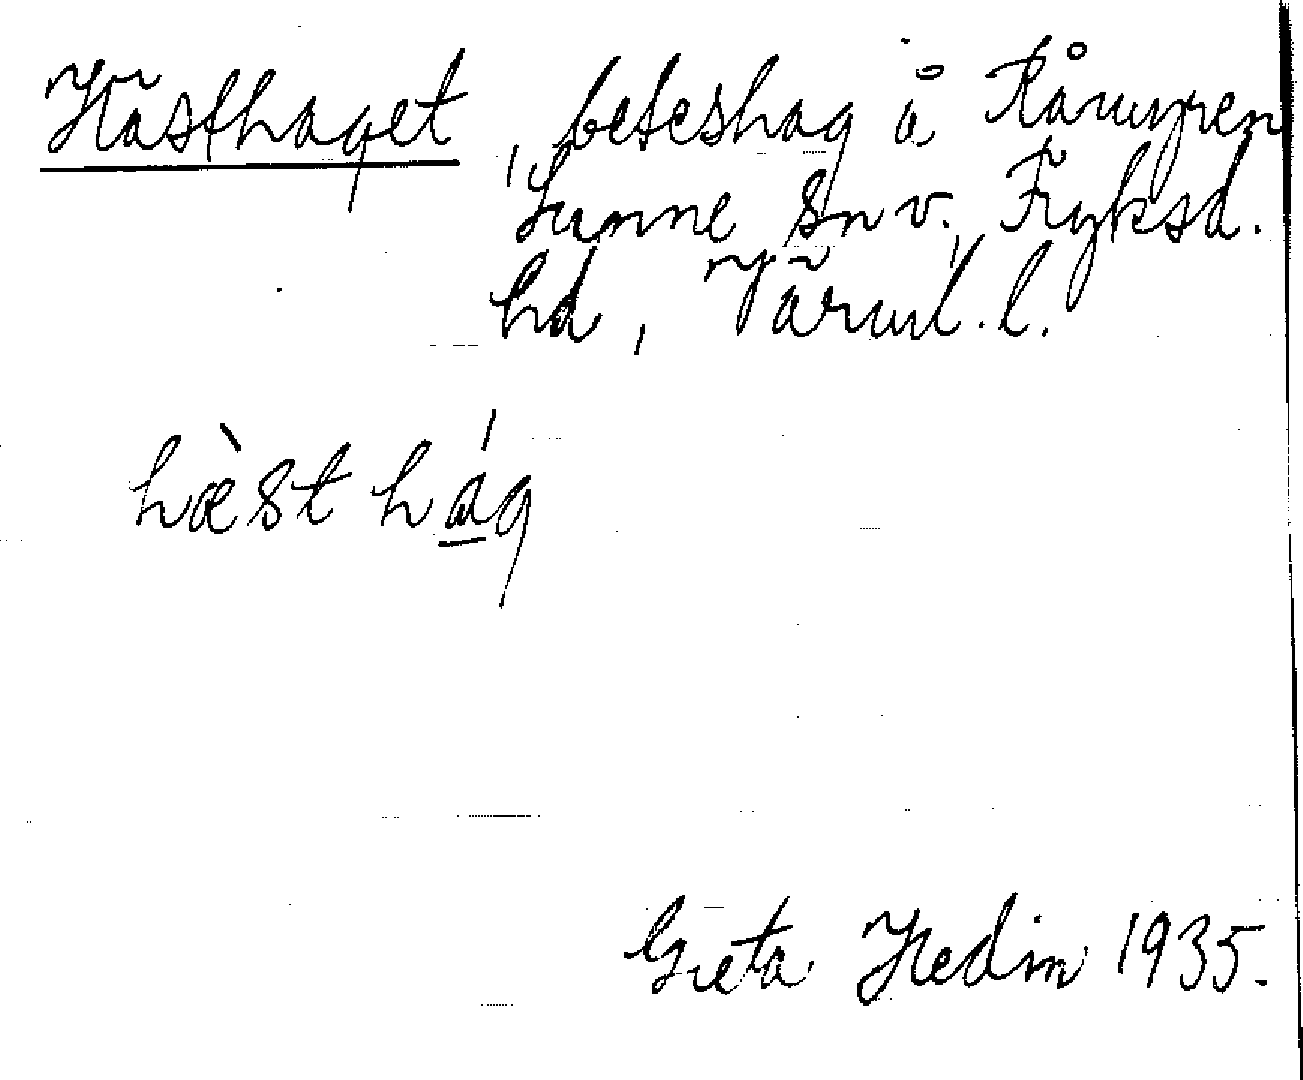 Hästhaget, beteshag å Kårmyren
Sunne sn v. Fryksd.
hd, Värml. l.
hæ̀st há̱g
Greta Hedin 1935.